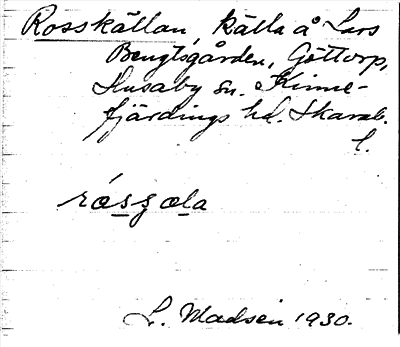 Rosskällan, källa å Lars
Bengtsgården, Göttorp,
Husaby sn. Kinne-
fjärdings hd. Skarab.
l.
L. Madsén 1930.